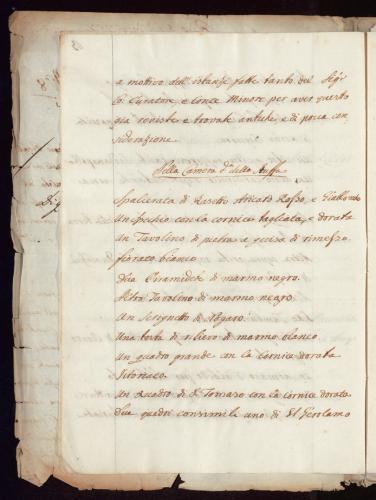 a motivo dell'istanze fatte tanto del Sig.r
Curatore, e Conte Minore per aver questo
già reviste e trovate antiche, e di poca con
siderazione.
Nella Camera d.a della
Spalierata di Rasetto Rosso, e Giallo
Un specchio con la cornice tagliata, e dorata
Un Tavolino di pietra a guisa di rimesso
fiorato bianco
Due Piramidette di marmo negro.
Altro Tavolino di marmo negro
Un Scrignetto di
Una testa di rilievo di marmo bianco
Un quadro grande con la cornice dorata
Un Quadro di S. Tomaso con la cornice dorata
Due quadri consimili uno di S. Gerolamo